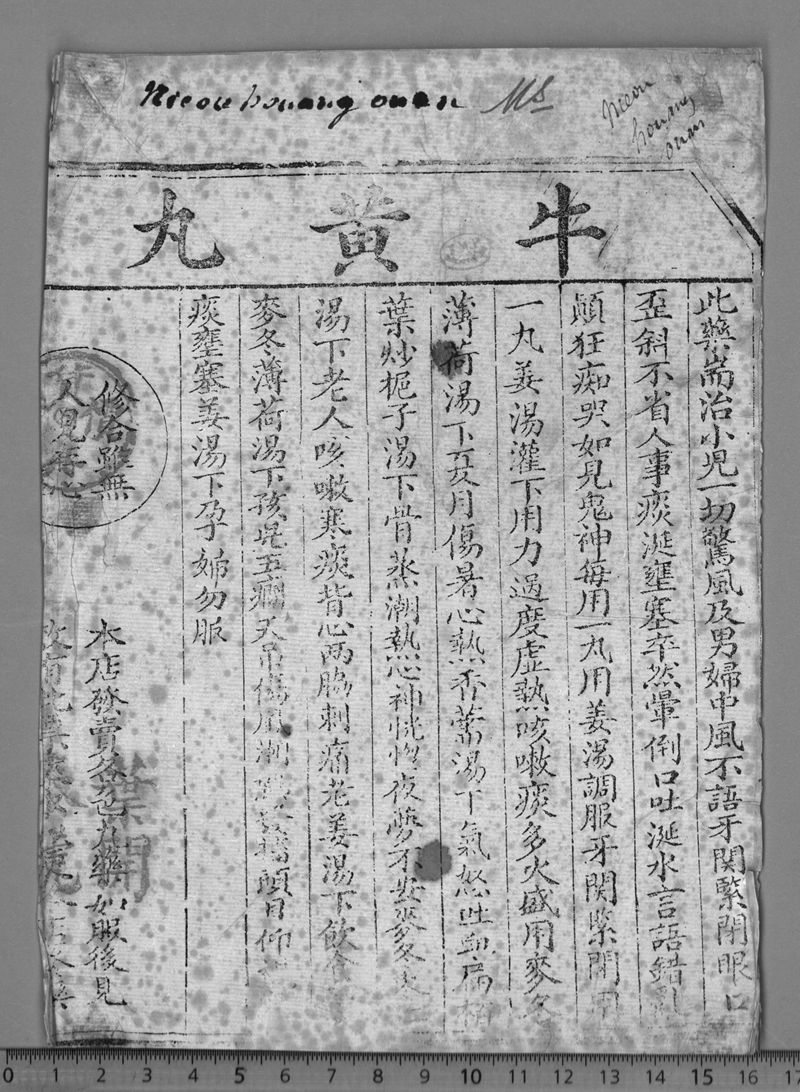 Nieou houang ouan Ms
nieou
houang
ouan
牛黄丸
此藥耑治小児一切驚風及男婦中風不語牙関緊閉眼口
歪斜不省人事痰涎壅塞卒然暈倒口吐涎水言語錯乱
顛狂痴哭如見鬼神每用一丸用姜湯調服牙関緊閉用
一丸姜湯灌下用力過度虛熱咳嗽痰多火盛用麥冬
薄荷湯下五六月傷暑心熱香薷湯下氣怒吐血扁柏
葉炒梔子湯下骨蒸潮熱心神恍惚夜夢不安麥冬
湯下老人咳嗽寒痰背心两脇刺痛老姜湯下飲食
麥冬薄荷湯下孩児五癇天吊傷風潮熱頭目仰
痰壅塞姜湯下孕婦勿服
修合雖無
人見存心
本店發賣各色丸藥如服後見